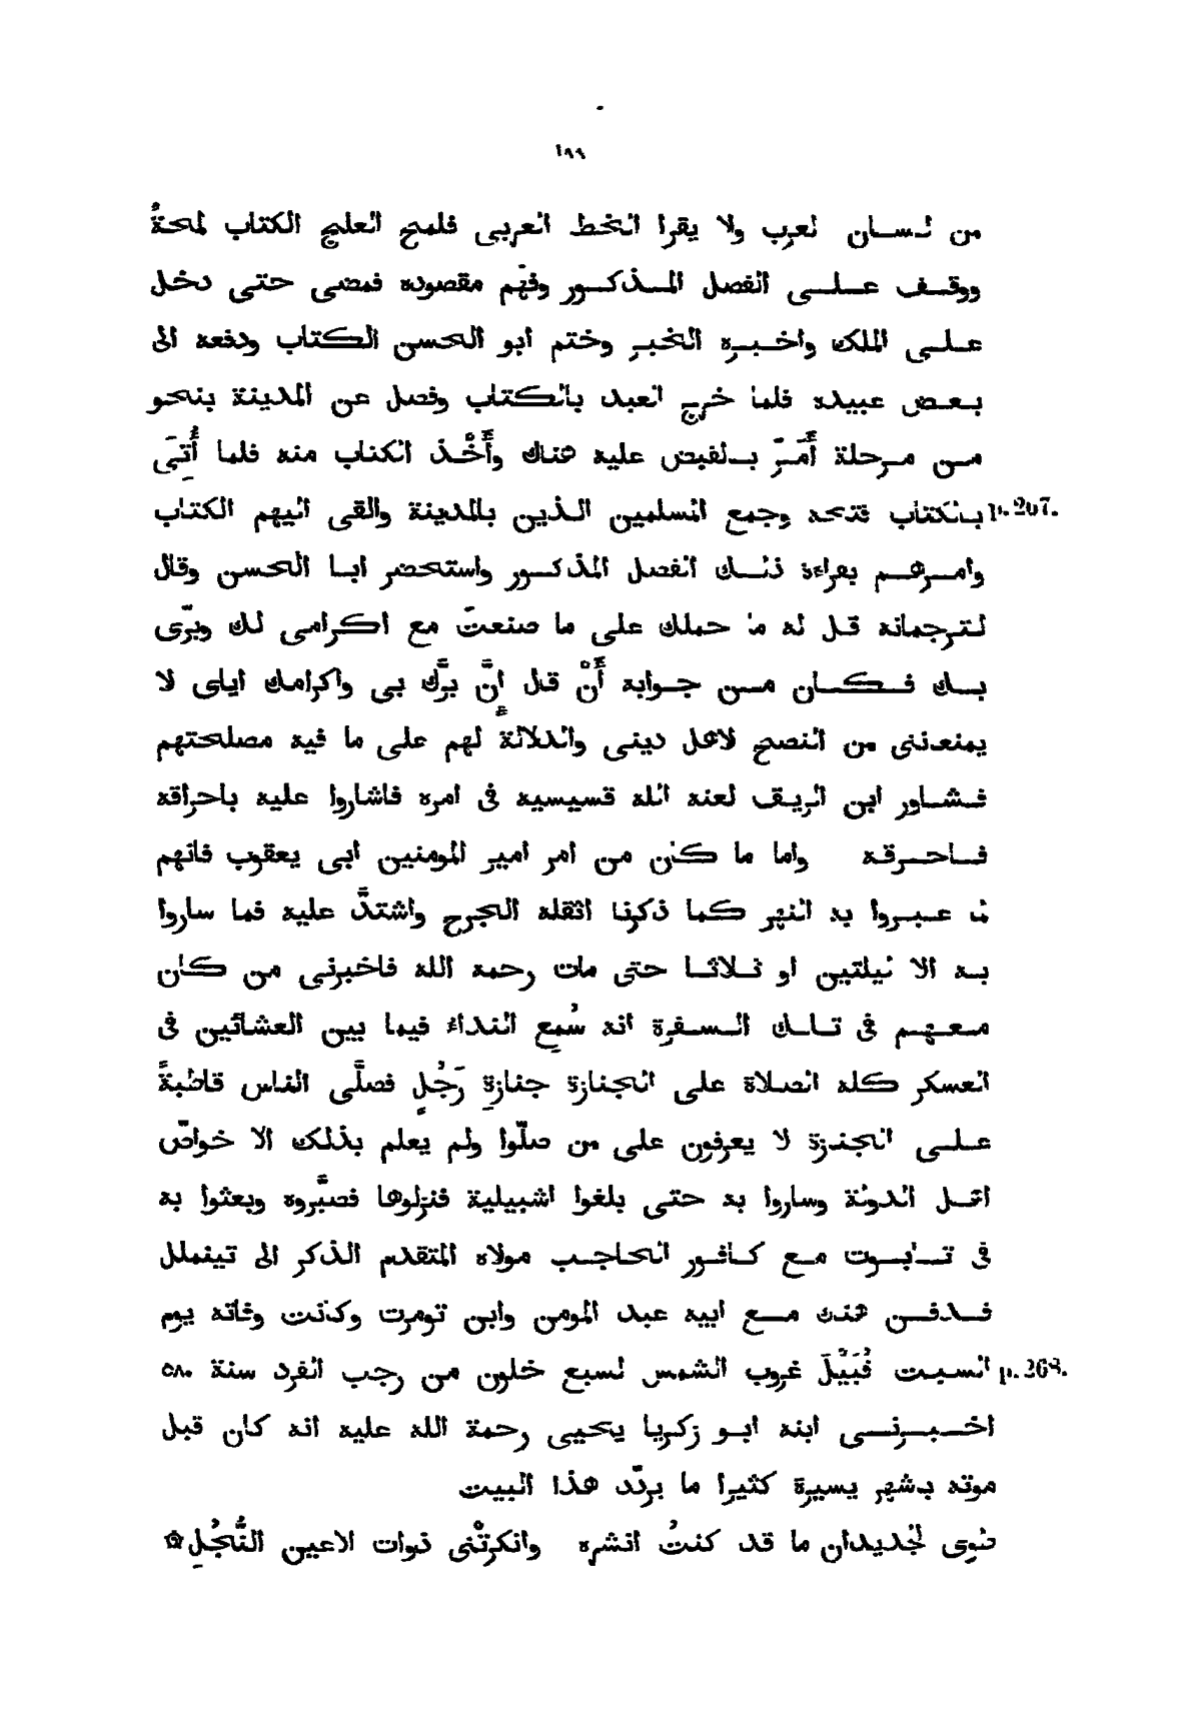 ١٨٩
من لسان العرب ولا يقرا الخط العربى فلمح العلج الكتاب لمحةً
ووقف على الفصل المذكور وفهّم مقصوده فمضى حتى دخل
على الملك واخبره الخبر وختم ابو الحسن الكتاب ودفعه الى
بعض عبيده فلما خرج العبد بالكتاب وفصل عن المدينة بنحو
من مرحلة أَمَرَ بالقبض عليه هناك وأَخْذ الكتاب منه فلما أُتِىَ
بالكتاب فتحه وجمع المسلمين الذين بالمدينة والقى اليهم الكتاب p. 267.
وامرهم بقراءة ذلك الفصل المذكور واستحضر ابا الحسن وقال
لترجمانه قل له ما حملك على ما صنعتَ مع اكرامى لك وبرّى
بك فكان من جوابه أَنْ قال إِنَّ برَّك بى واكرامك اياى لا
يمنعننى من النصح لاهل دينى والدلالة لهم على ما فيه مصلحتهم
فشاور ابن الريق لعنه الله قسيسيه فى امره فاشاروا عليه باحراقه
فاحرقه واما ما كان من امر امير المومنين ابى يعقوب فانهم
لما عبروا به النهر كما ذكرنا اثقله الجرح واشتدَّ عليه فما ساروا
به الا ليلتين او ثلاثا حتى مات رحمه الله فاخبرنى من كان
معهم فى تلك السفرة انه سُمِع النداء فيما بين العشائين فى
العسكر كله الصلاة على الجنازة جنازةِ رَجُلٍ فصلَّى الناس قاطبةً
على الجنازة لا يعرفون على من صلّوا ولم يعلم بذلك الا خواصّ
اهل الدولة وساروا به حتى بلغوا اشبيلية فنزلوها فصبَّروه وبعثوا به
فى تابوت مع كافور الحاجب مولاه المتقدم الذكر الى تينملل
فدفن هناك مع ابيه عبد المومن وابن تومرت وكانت وفاته يوم
السبت قُبَيْلَ غروب الشمس لسبع خلون من رجب الفرد سنة ٥٨٠ p. 268.
اخبرنى ابنه ابو زكريا يحيى رحمة الله عليه انه كان قبل
موته باشهر يسيرة كثيرا ما يردّد هذا البيت
طوى الجديدان ما قد كنتُ انشره وانكرتْنى ذوات الاعين النُّجُلِ۞